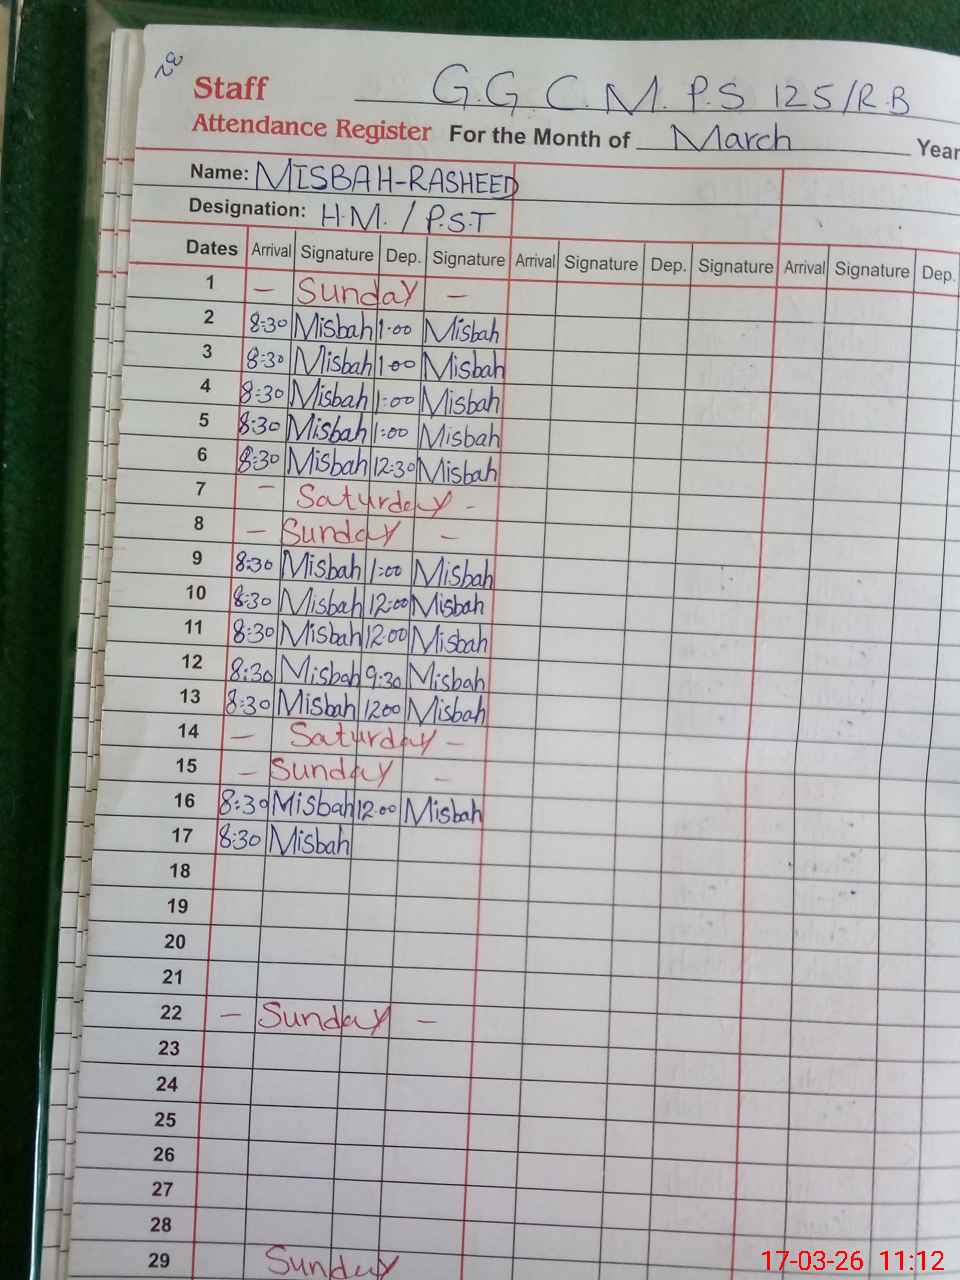 28
Staff G.G.C.M.P.S 125/R.B
Attendance Register For the Month of March Year
Name: MISBAH-RASHEED
Designation: H.M. / P.S.T
Dates Arrival Signature Dep. Signature Arrival Signature Dep. Signature Arrival Signature Dep.
1 - Sunday -
2 8:30 Misbah 1:00 Misbah
3 8:30 Misbah 1:00 Misbah
4 8:30 Misbah 1:00 Misbah
5 8:30 Misbah 1:00 Misbah
6 8:30 Misbah 12:30 Misbah
7 - Saturday -
8 - Sunday -
9 8:30 Misbah 1:00 Misbah
10 8:30 Misbah 12:00 Misbah
11 8:30 Misbah 12:00 Misbah
12 8:30 Misbah 9:30 Misbah
13 8:30 Misbah 1200 Misbah
14 - Saturday -
15 - Sunday -
16 8:30 Misbah 12:00 Misbah
17 8:30 Misbah
18
19
20
21
22 - Sunday -
23
24
25
26
27
28
29 Sunday
17-03-26 11:12